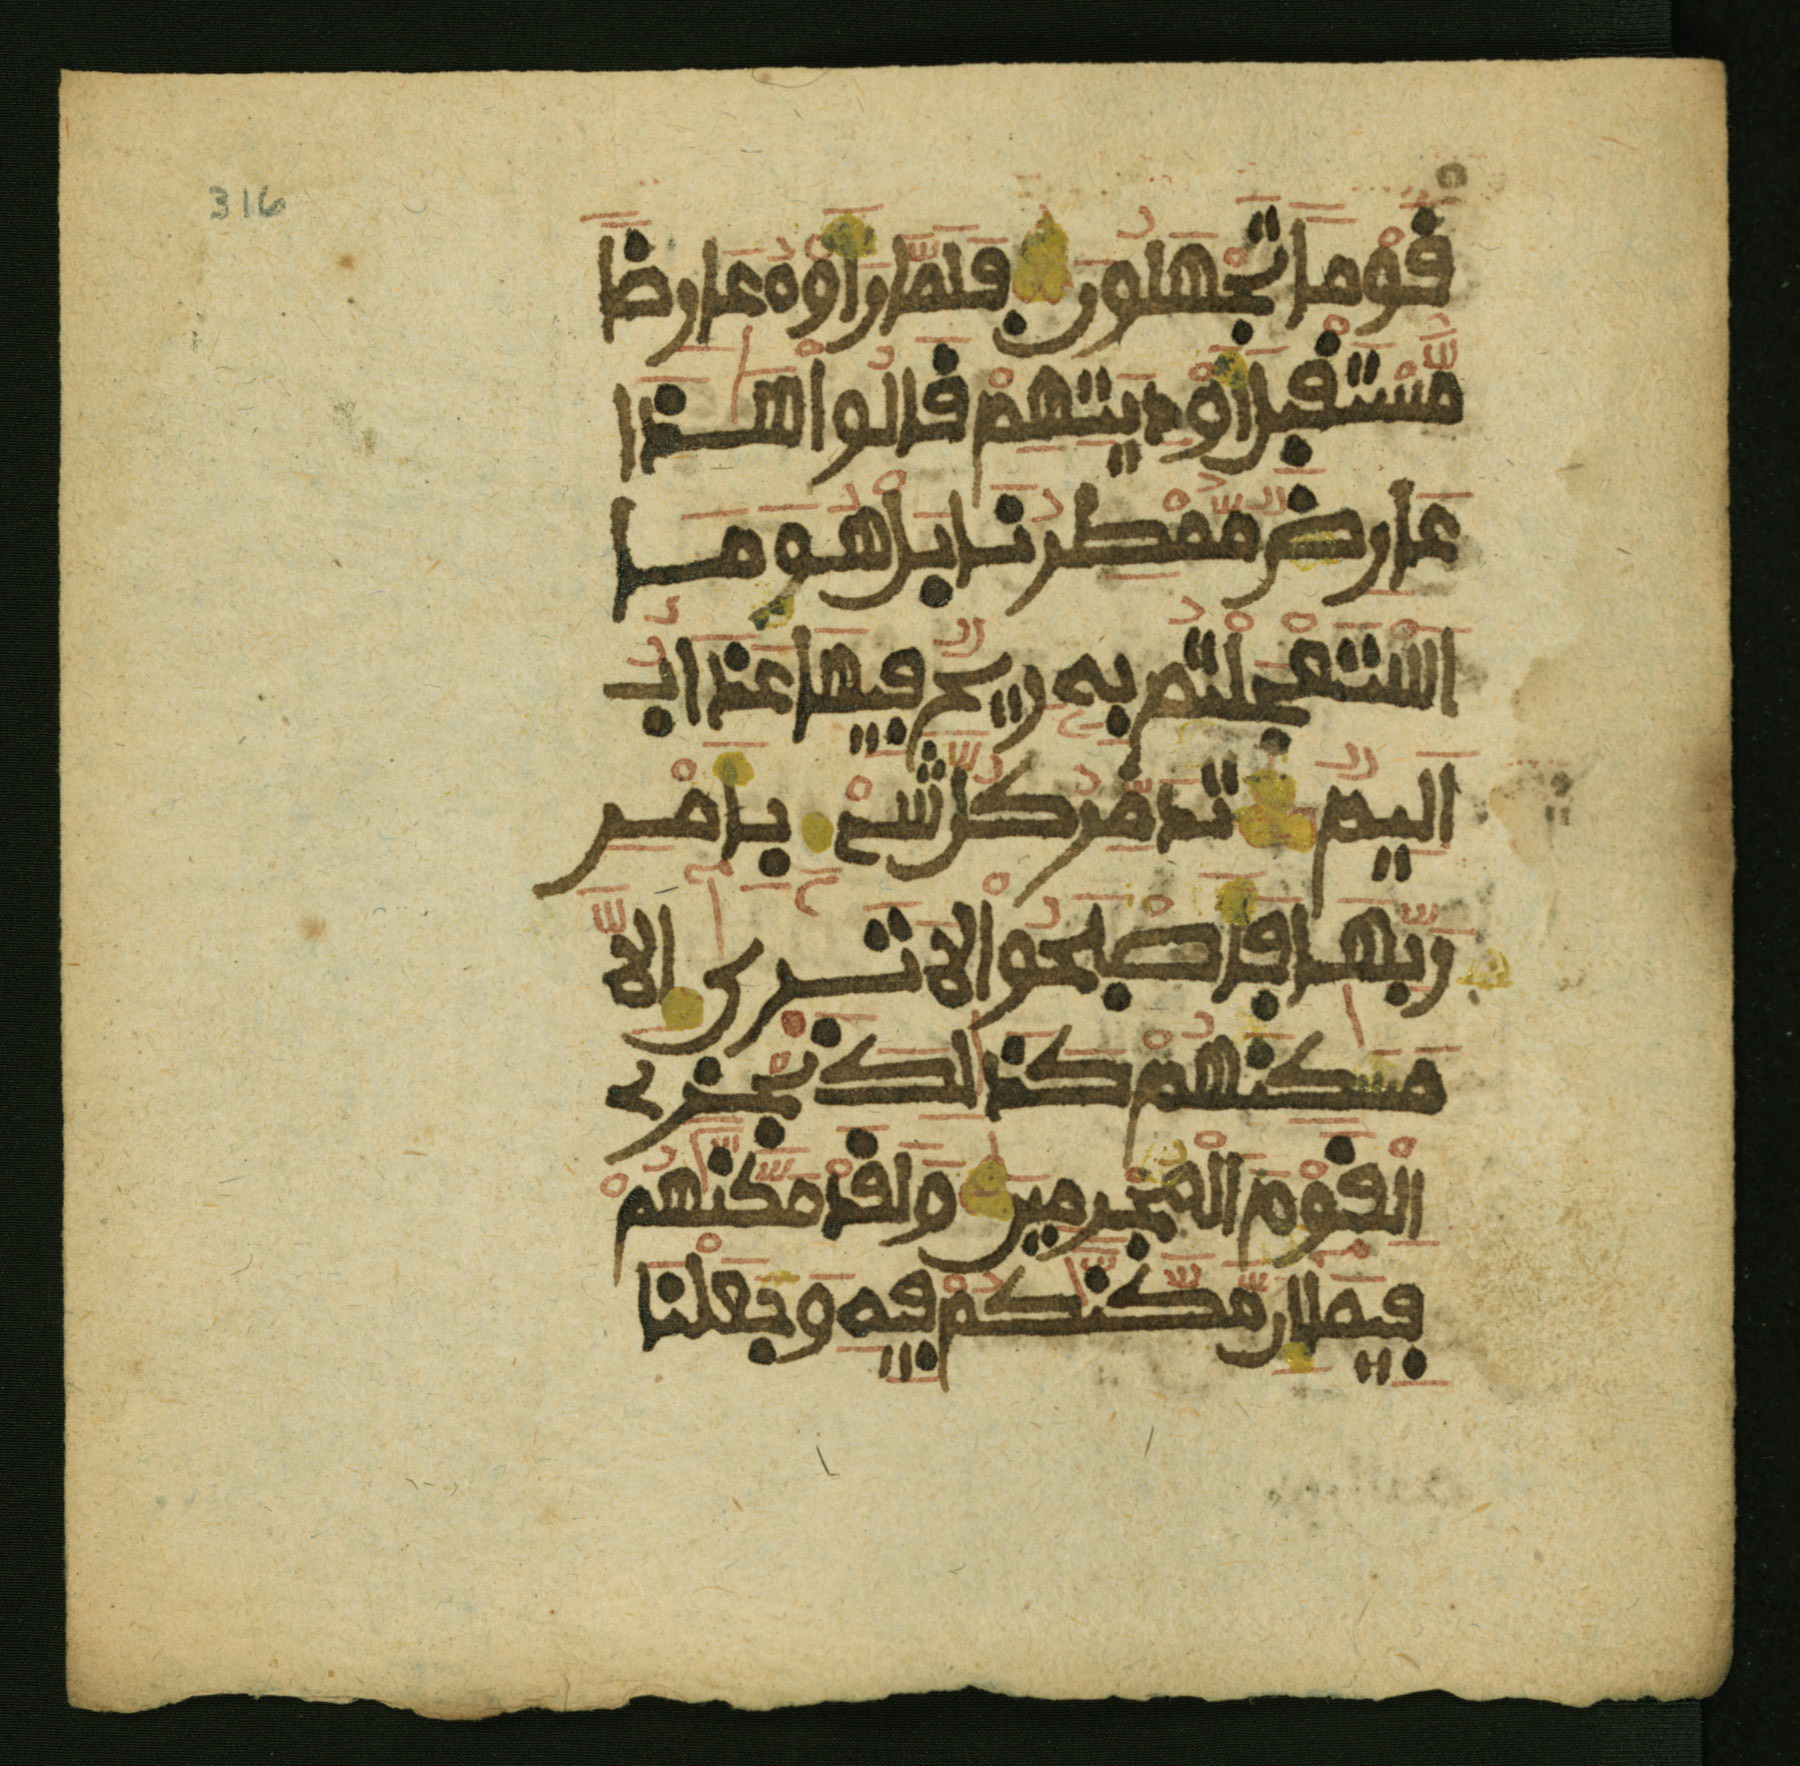 316
قوما تجهلون فلما راوه عارضا
مستقبل اوديتهم قالوا هذا
عارض ممطرنا بل هو ما
استعجلتم به ريح فيها عذاب
اليم تدمر كل شے بامر
ربها فاصبحوا لا ترى الا
مسكنهم كذالك نجزے
القوم المجرمين ولقد مكنهم
فيما ان مكنكم فيه وجعلنا